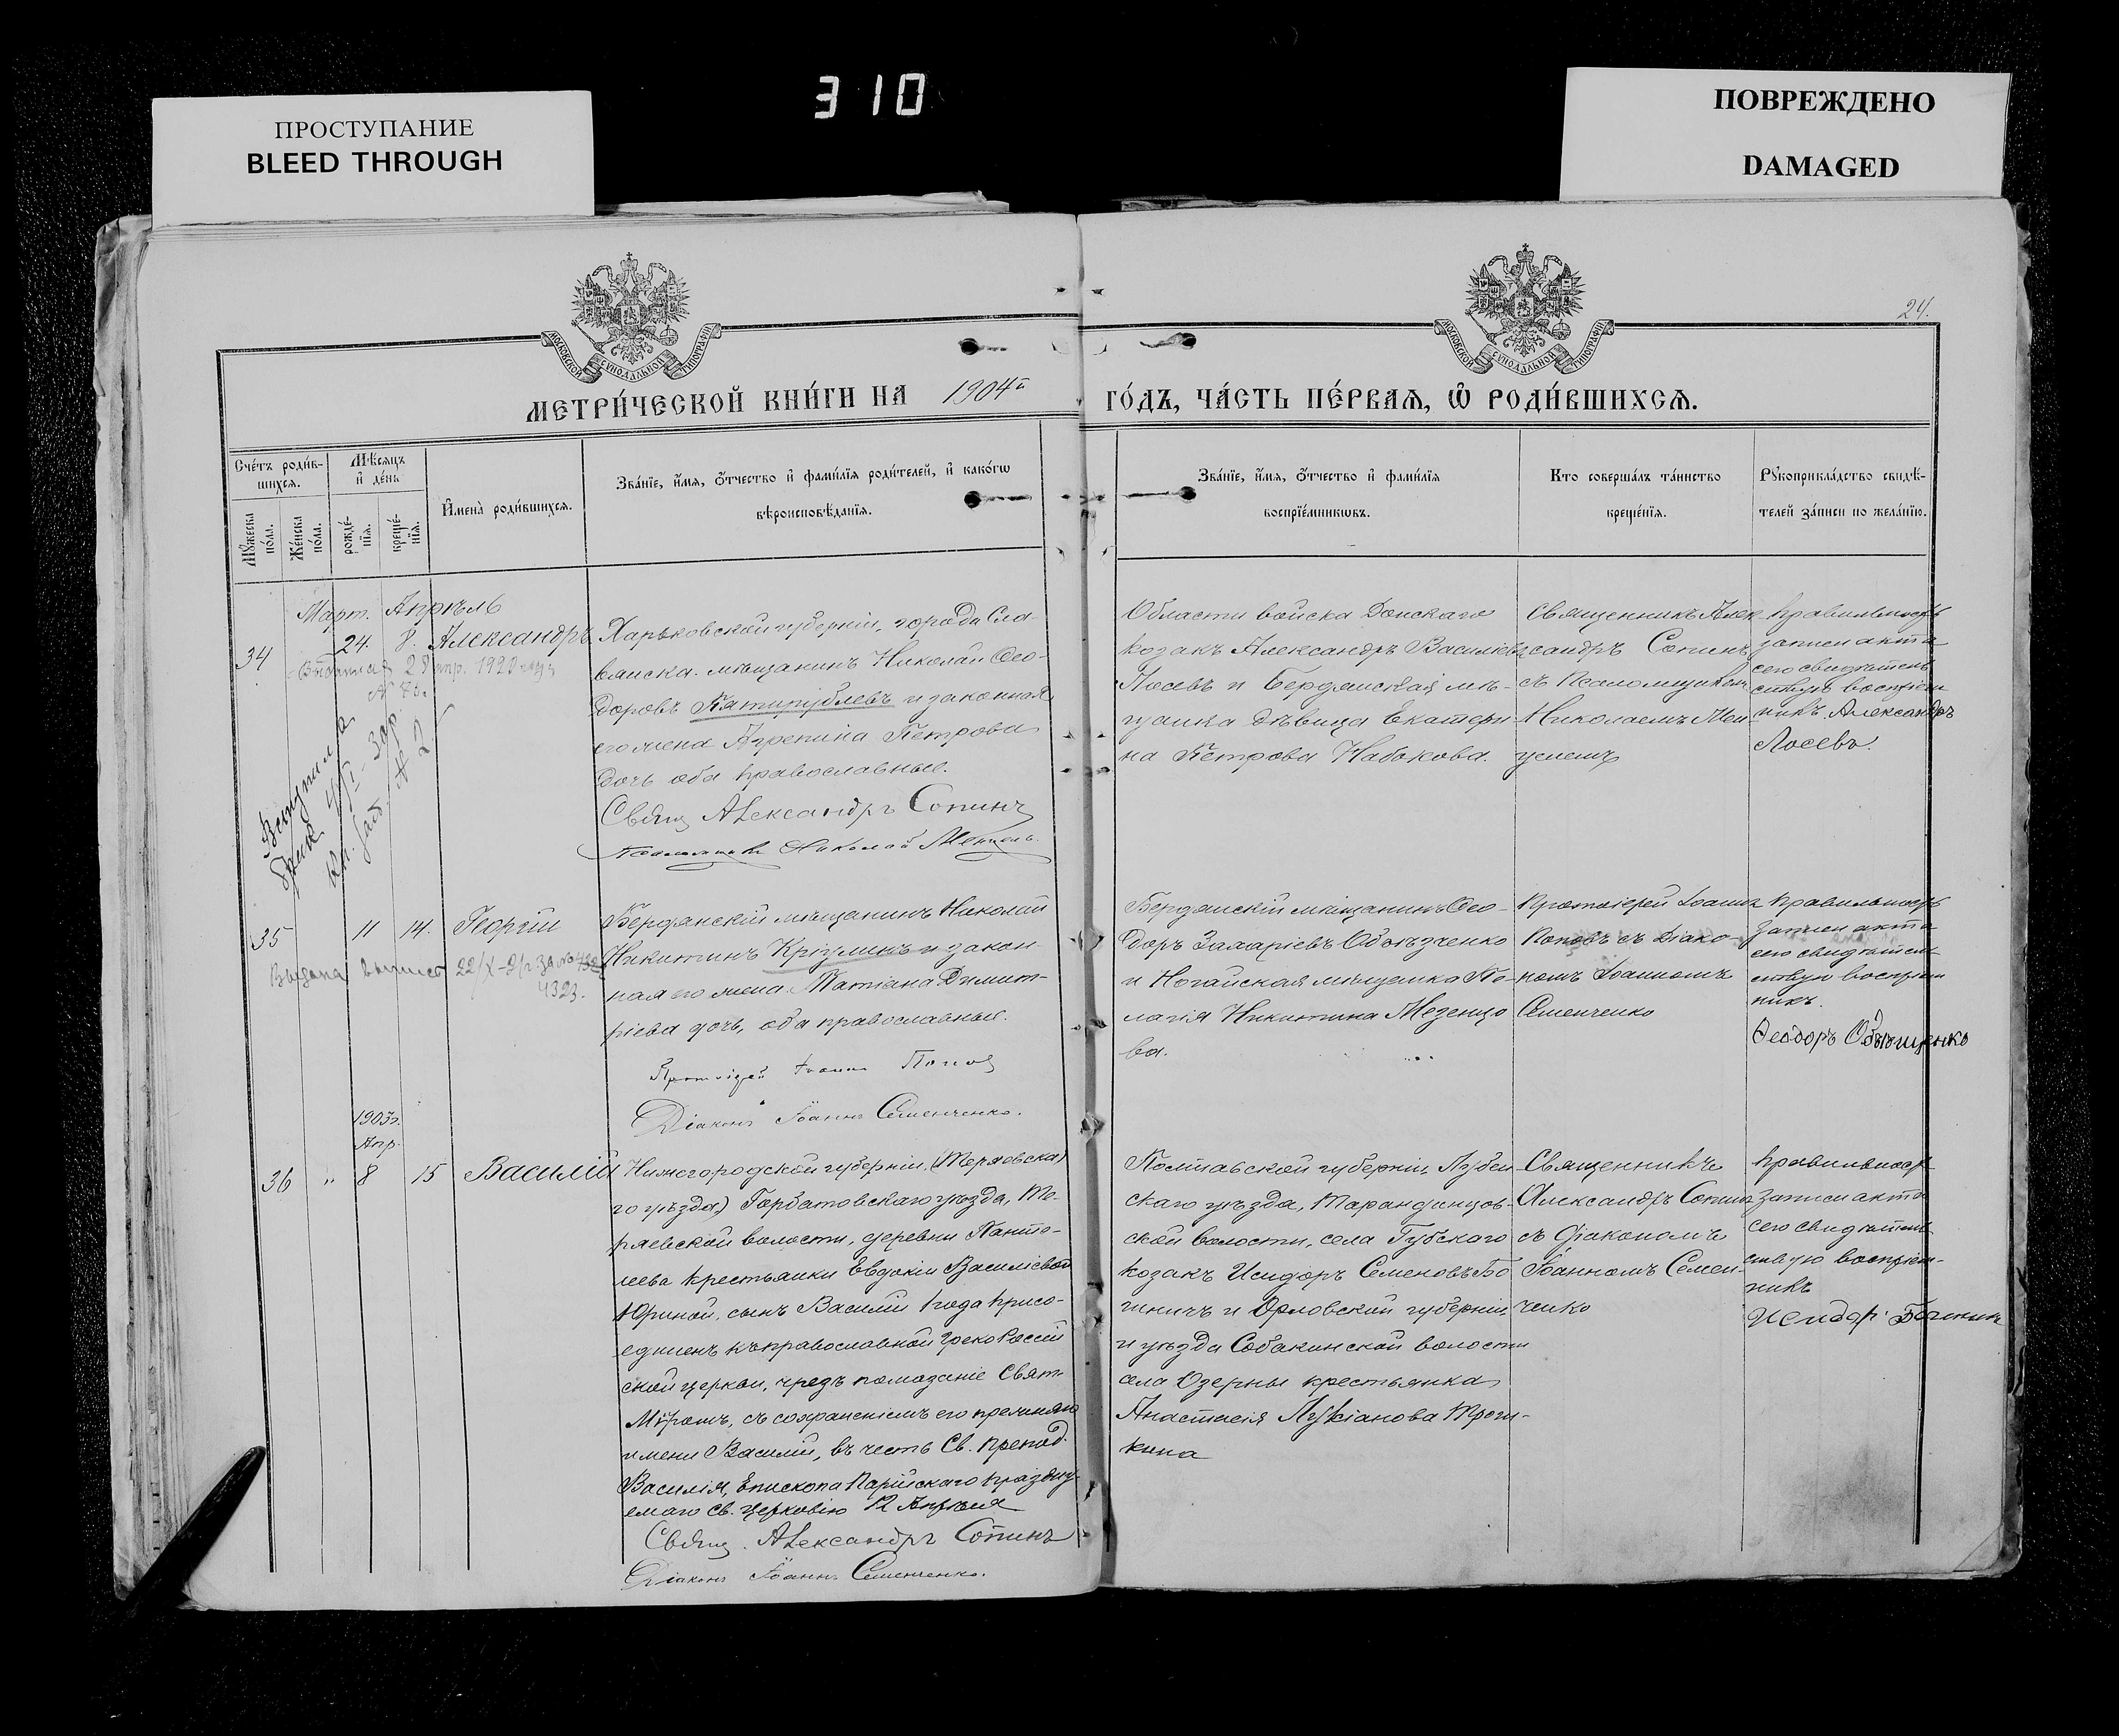 310
ПРОСТУПАНИЕ
BLEED THROUGH
ПОВРЕЖДЕНО
DAMAGED
24.
МОСКОВСКОЙ СѴНОДАЛЬНОЙ ТИПОГРАФІИ
МОСКОВСКОЙ СѴНОДАЛЬНОЙ ТИПОГРАФІИ
МЕТРИ́ЧЕСКОЙ КНИ́ГИ НА 1904й ГО́ДЪ, ЧА́СТЬ ПЕ́РВАѦ, Ѽ РОДИ́ВШИХСѦ.
Сче́тъ роди́в-
шихсѧ.
Мꙋ́жеска по́ла.
Же́нска по́ла.
Мѣ́сѧцъ и҆ де́нь
рожде́-
нїѧ.
креще́-
нїѧ.
И҆мена̀ роди́вшихсѧ.
Зва́нїе, и҆́мѧ, ѻ҆́тчество и҆ фами́лїѧ роди́телей, и҆ како́гѡ
вѣроисповѣ́данїѧ.
Зва́нїе, и҆́мѧ, ѻ҆́тчество и҆ фами́лїѧ
воспрїе́мникѡвъ.
Кто̀ соверша́лъ та́инство
креще́нїѧ.
Рꙋкоприкла́дство свидѣ́-
телей за́писи по жела́нїю.
Март. Апрѣль
34 24. 8. Александръ
Харьковской губерніи, города Сла-
вянска мѣщанинъ Николай Ѳео-
доровъ Пятирублевъ и законная
его жена Агрепина Петрова
дочь оба православные.
Свящ Александръ Сопинъ
Николай
Области войска Донскаго
козакъ Александръ Василіевъ
Лосевъ и Бердянская мѣ-
щанка дѣвица Екатери-
на Петрова Набокова.
Священникъ Алек-
сандръ Сопинъ
съ Псаломщиком
Николаемъ
Правильность
записи акта
сего свидѣтель-
ствую воспріем
никъ Александръ
Лосевъ.
35 11 14. Георгій
22/X-
4323.
Бердянскій мѣщанинъ Николай
Никитинъ и закон-
ная его жена Татіана Димит-
ріева дочь, оба православные.
Протоіерей Іоаннъ Поповъ
Діаконъ Іоаннъ Семенченко.
Бердянскій мѣщанинъ Ѳео-
доръ Захаріевъ
и Ногайская мѣщанка Пе-
лагія Никитина Мезенцо
ва.
Протоіерей Іоаннъ
Поповъ съ Діако-
номъ Іоанномъ
Семенченко
Правильность
записи акта
сего свидѣтель
ствую воспріем
никъ.
Ѳеодоръ
1903г.
Апр.
36 " 8 15 Василій
Нижегородской губерніи,
го уѣзда) Горбатовскаго уѣзда,
волости, деревни Панте-
леева крестьянки Евдокіи Василіевой
Юриной, сынъ Василій 1 года присо-
единенъ къ православной Греко Россій
ской церкви, чрезъ помазаніе Свят.
Мѵромъ, съ сохраненіемъ его прежняго
имени Василій, въ честь Св. препод.
Василія, Епископа Парійскаго праздну-
емаго св. церковію 12 Апрѣля
Свящ. Александръ Сопинъ
Діаконъ Іоаннъ Семенченко.
Полтавской губерніи Лубен-
скаго уѣзда, Тарандинцов-
ской волости, села Губскаго
козакъ Исидоръ Семеновъ
и Орловской губерніи
и уѣзда Собакинской волости
села Озерны крестьянка
Анастасія Лукіанова Трош-
кина
Священникъ
Александръ Сопинъ
съ діакономъ
Іоанномъ Семен-
ченко
Правильность
записи акта
сего свидѣтель
ствую воспріем-
никъ
Исидор